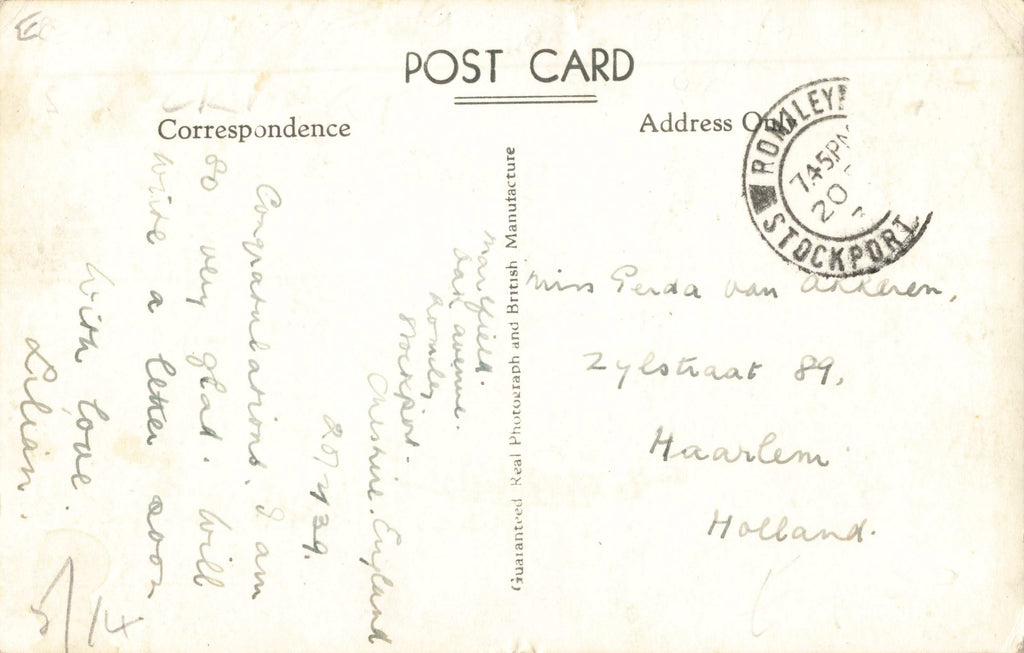 POST CARD
Correspondence
Address Only
ROMILEY
7.45PM
20
STOCKPORT
Guaranteed Real Photograph and British Manufacture
Marfield.
Oak avenue.
Romiley
Stockport.
Cheshire. England
20/7/39.
Congratulations. I am
so very glad. Will
write a letter soon
With love.
Lilian.
Miss Gerda van Akkeren,
Zylstraat 89,
Haarlem
Holland.